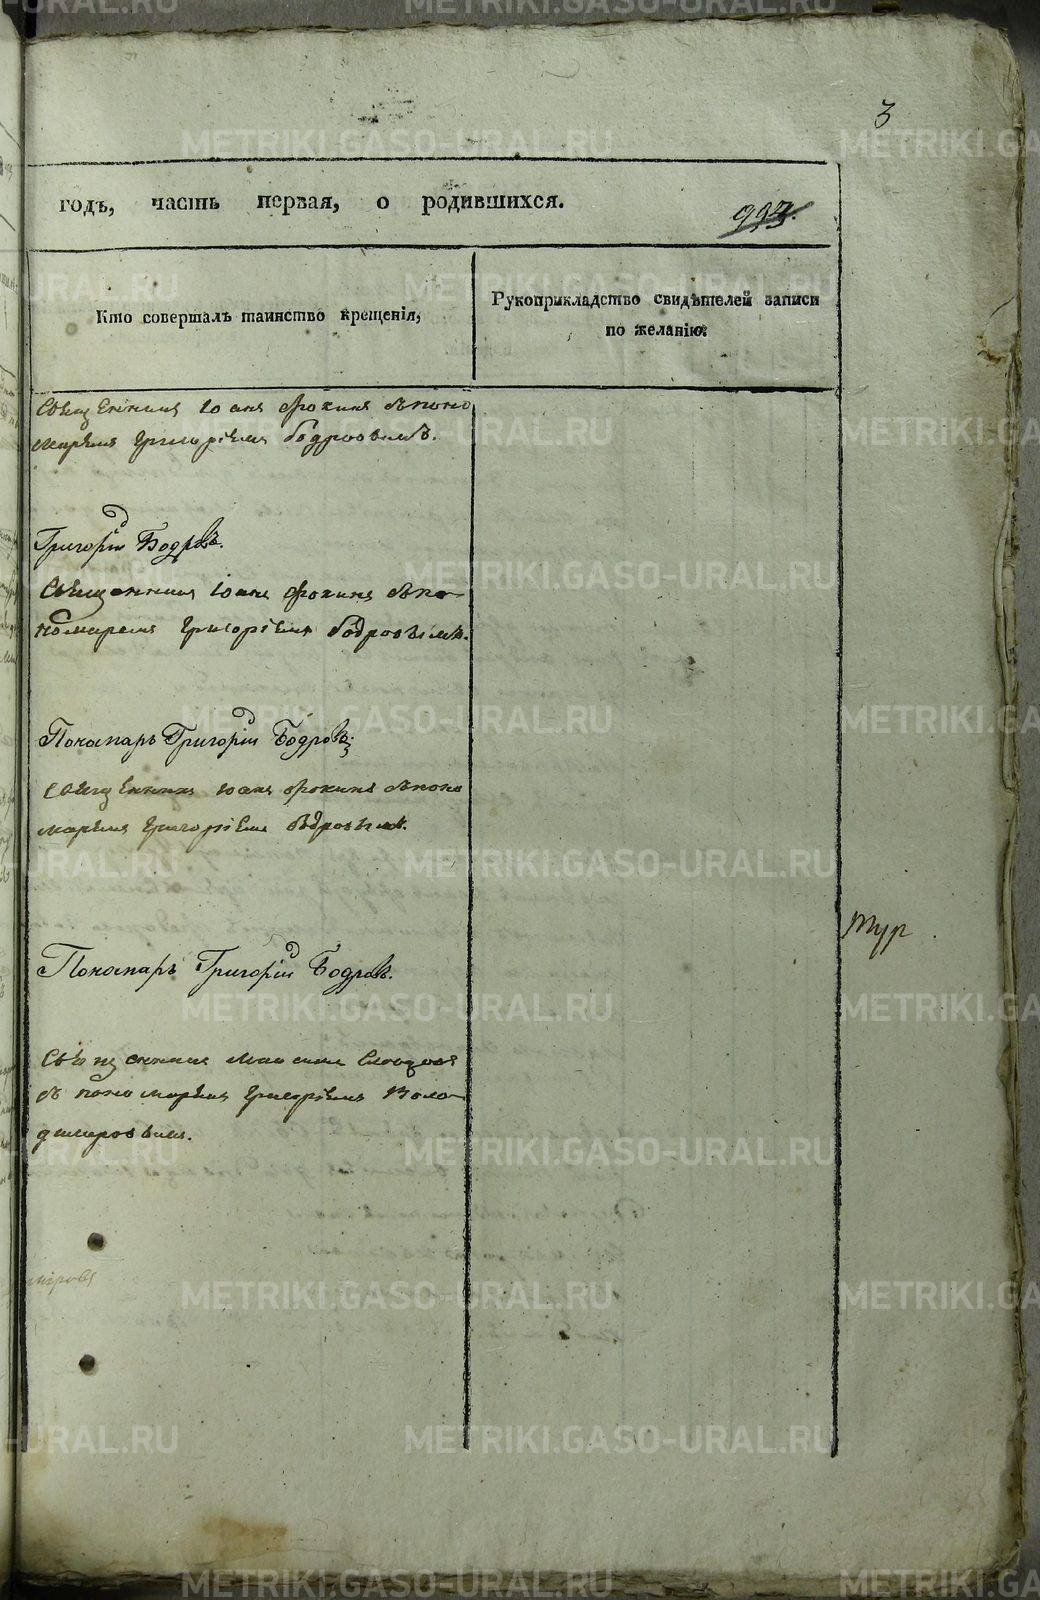 3
годъ, часть первая, о родившихся.
993.
Кто совершалъ таинство крещенія,
Рукоприкладство свидѣтелей записи
по желанію.
Священникъ Іоанъ Фокинъ съ поно
маремъ Григоріемъ Бодровымъ.
Григорій Бодровъ.
Священникъ Іоанъ Фокинъ съ по-
номаремъ Григоріемъ Бодровымъ.
Пономарь Григорій Бодровъ
Священникъ Іоанъ Фокинъ съ поно
маремъ Григоріемъ Бодровымъ.
тур
Пономарь Григорій Бодровъ.
Священникъ Максимъ
съ пономаремъ Григоріемъ Воло-
димеровымъ.
мировъ
METRIKI.GASO-URAL.RU